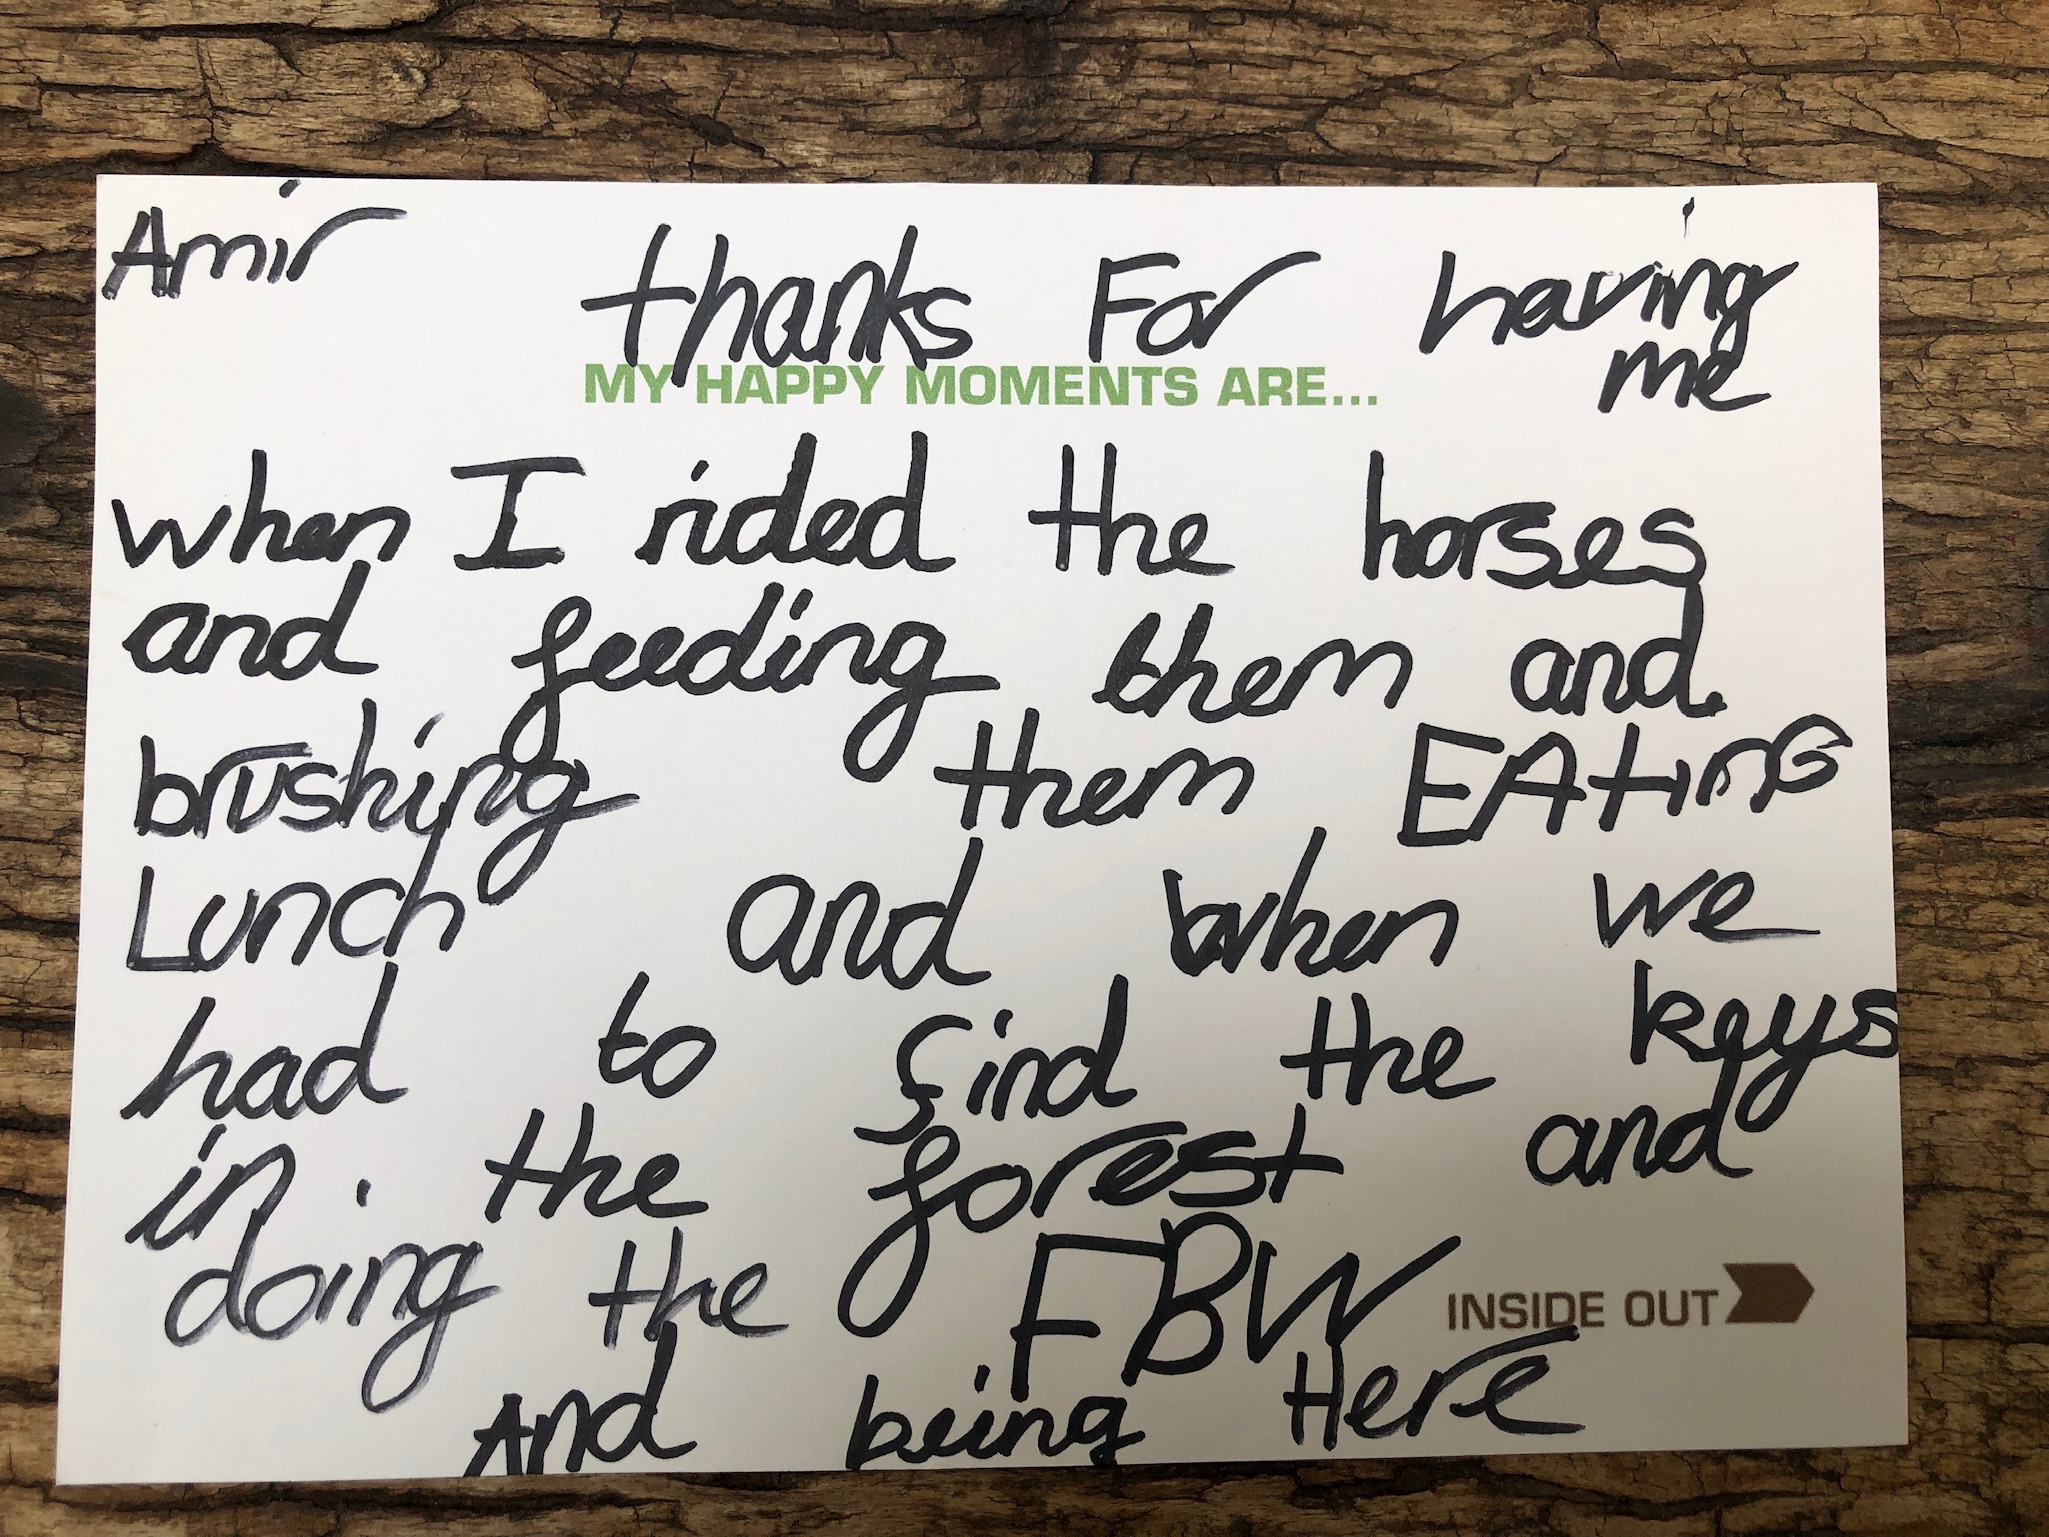 Amir
thanks For having
me
MY HAPPY MOMENTS ARE...
when I rided the horses
and feeding them and.
brushing them EAtinG
Lunch and when we
had to find the keys
in the forest and
doing the FBW
INSIDE OUT
And being Here